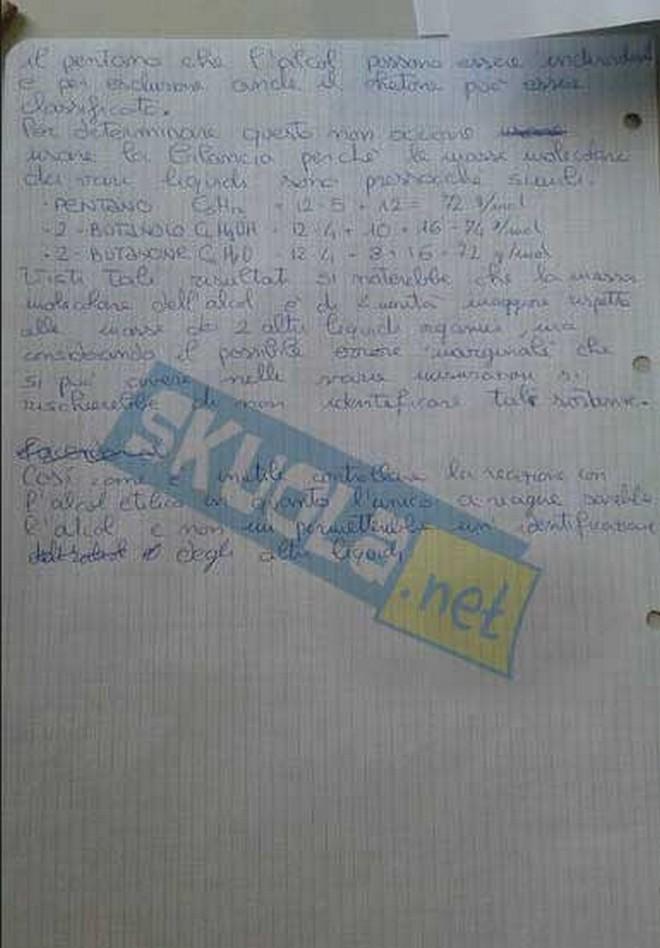 il pentano che l'alcol possono essere individuati
e per esclusione anche il chetone può essere
classificato.
Per determinare questo non occorre
usare la bilancia perché le masse molecolare
dei vari liquidi sono pressoché simili.
·PENTANO C5H12 = 12·5 + 12 = 72 g/mol
·2-BUTANOLO C4H9OH = 12·4 + 10 + 16 = 74 g/mol
·2-BUTANONE C4H8O = 12·4 + 8 + 16 = 72 g/mol
Visti tali risultati si noterebbe che la massa
molecolare dell'alcol è di 2 unità maggiore rispetto
alle masse dei 2 altri liquidi organici, ma
considerando il possibile errore "marginale" che
si può avere nelle varie misurazioni si
rischierebbe di non identificare tale sostanze.
Così come è inutile controllare la reazione con
l'alcol etilico in quanto l'unico a reagire sarebbe
l'alcol e non mi permetterebbe un'identificazione
degli altri liquidi
SKUOLA
.net